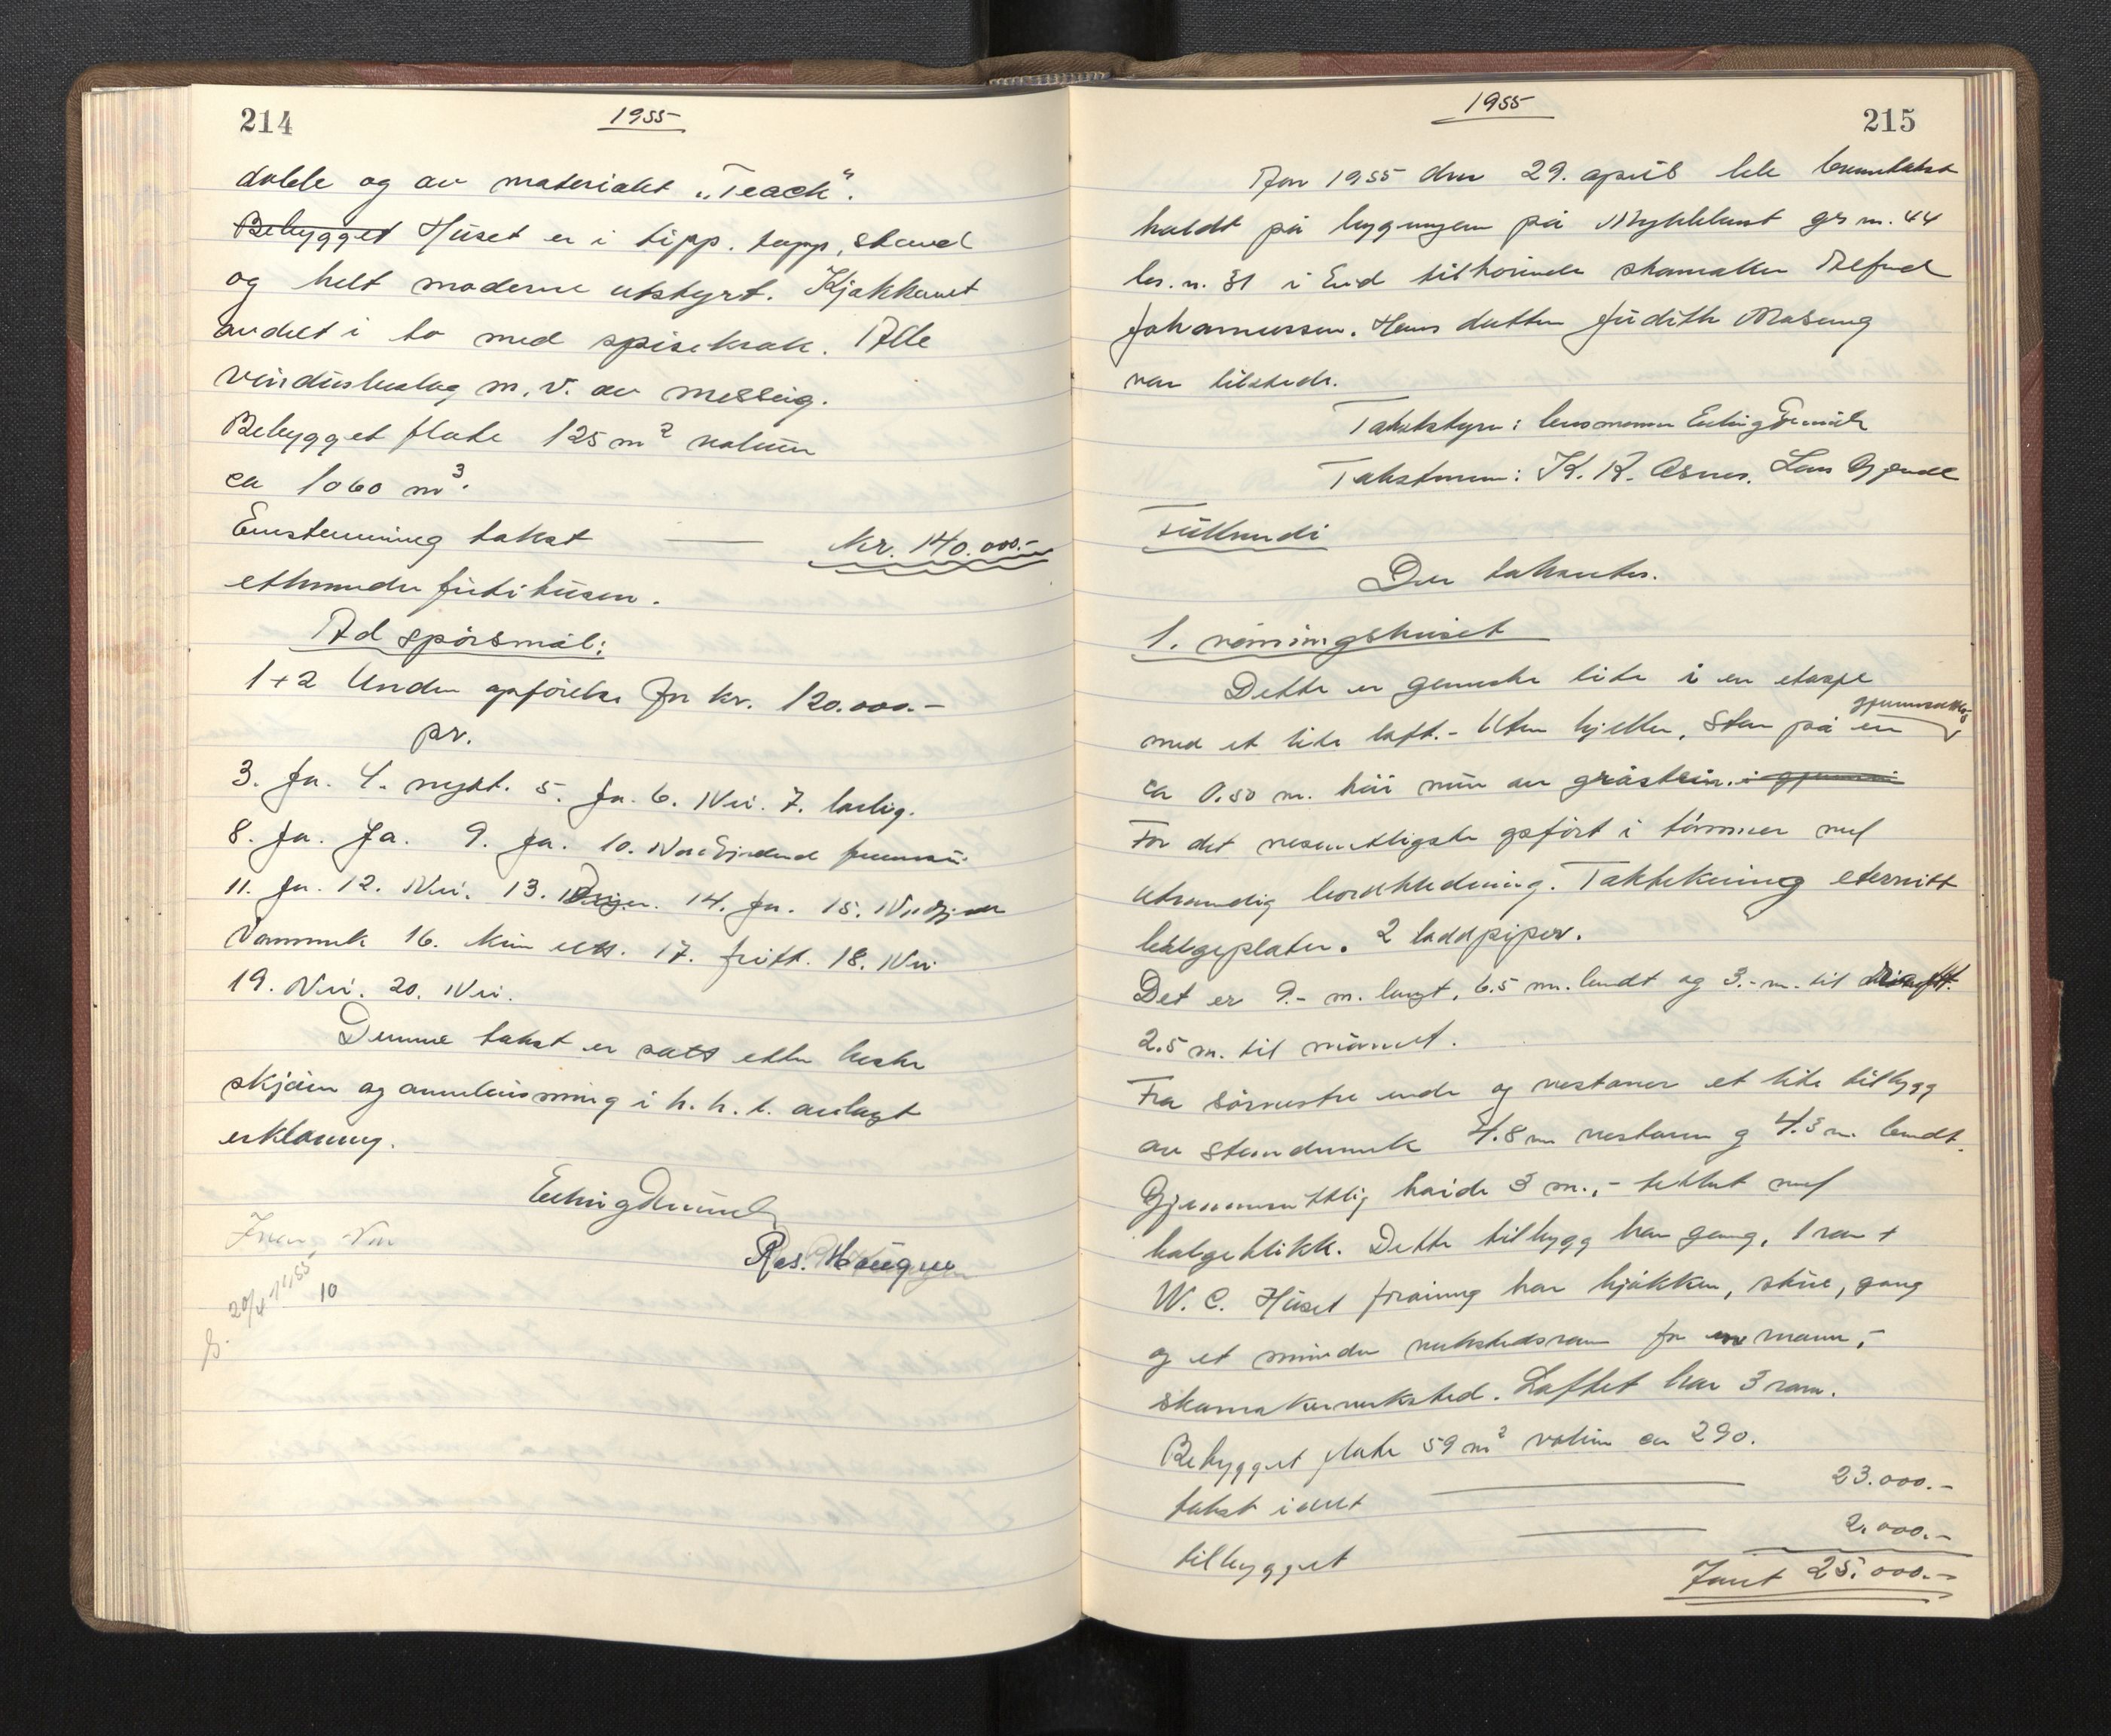 214
1955
doble og av materialet "Teack".
Bebygget Huset er i tipp. topp. stand
og helt moderne utstyrt. Kjøkkenet
avdelt i to med spisekrok. Alle
vindusbeslag m.v. av messing.
Bebygget flate 125 m² volum
ca 1060 m³.
Enstemmig takst — kr. 140.000.-
etthundre førti tusen.
Ad spørsmål:
1+2 Under opførelse for kr. 120.000.-
pr.
3. Ja. 4. nytt. 5. Ja. 6. Nei. 7. bolig.
8. Ja. Ja. 9. Ja. 10. Nei
11. Ja. 12. Nei. 13. 14. Ja. 15. Nei
16. 17. fritt. 18. Nei
19. Nei. 20. Nei.
Denne takst er satt etter beste
skjøn og overbevisning i h. h. t. avlagt
erklæring.
Erling
Ras. Haugen
20/4 1955
10
1955
215
År 1955 den 29. april ble branntakst
holdt på bygningen på Myklebust gr. nr. 44
br. n. 31 i Eid tilhørende skomaker Alfred
Johannessen. Hans datter Judith Måseng
var tilstede.
Takstbestyrer: lensmann Erling
Takstmenn: K. R. Osnes. Lars Gjerde
Der takseres.
1. våningshuset
Dette er ganske lite i en etasje
med et lite loft. - Uten kjeller. Står på en gjennomsnittlig
ca 0.50 m. høi mur av gråstein.
For det vesentligste opført i tømmer med
utvendig bordkledning. Taktekning eternitt
bølgeplater. 2 loddpiper.
Det er 9.- m. langt, 6.5 m. bredt og 3.- m. til
2.5 m. til mønnet.
Fra sørvestre ende og vestover et lite tilbygg
av stenderverk 4.8 m vestover og 4.3 m. bredt.
Gjennomsnittlig høide 3 m., - tekket med
bølgeblikk. Dette tilbygg har gang, 1 rom +
W. C. Huset forøvrig har kjøkken, stue, gang
og et mindre verkstedsrom for en mann, -
skomakerverksted. Loftet har 3 rom.
Bebygget flate 59 m² volum ca 290.
takst i alt — 23.000.-
tilbygget — 2.000.-
Sum 25.000.-